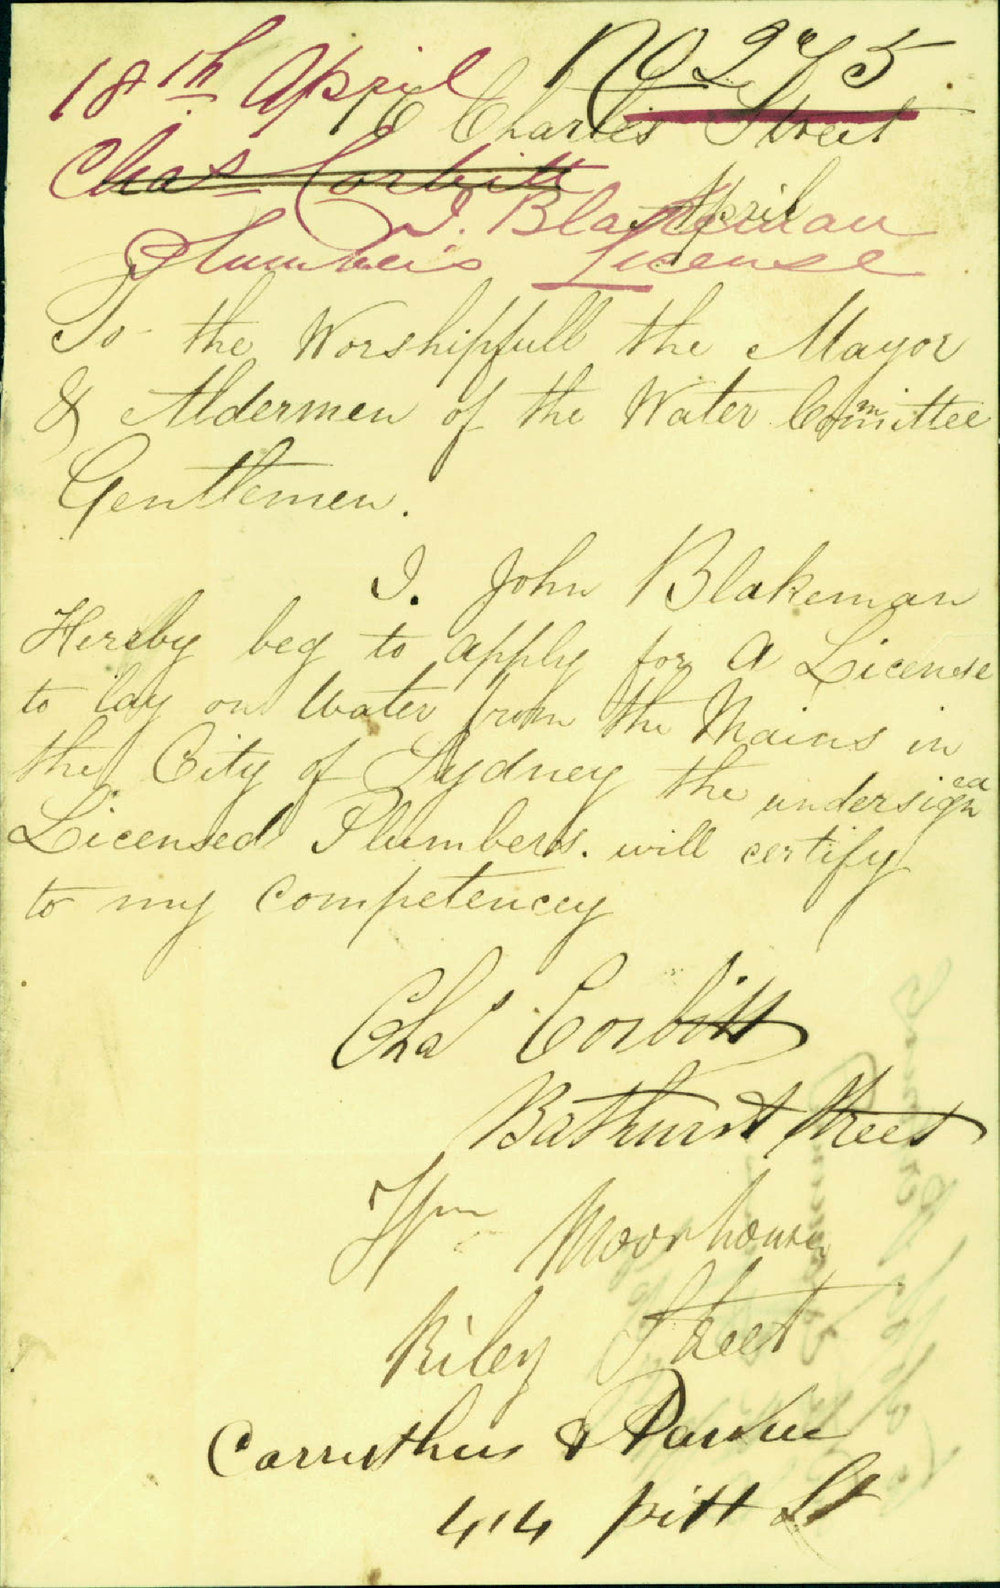 18th April No 275
16 Charles Street
Chas Corbitt
April
J. Blakeman
Plumbers License
To the Worshipfull the Mayor
& Aldermen of the Water Committee
Gentlemen.
I. John Blakeman
Hereby beg to apply for A License
to lay on Water from the Mains in
the City of Sydney the undersigned
Licensed Plumbers. will certify
to my competencey
Chas Corbitt
Bathurst Street
Wm Moorhouse
Riley Street
Carruthers &
414 pitt St